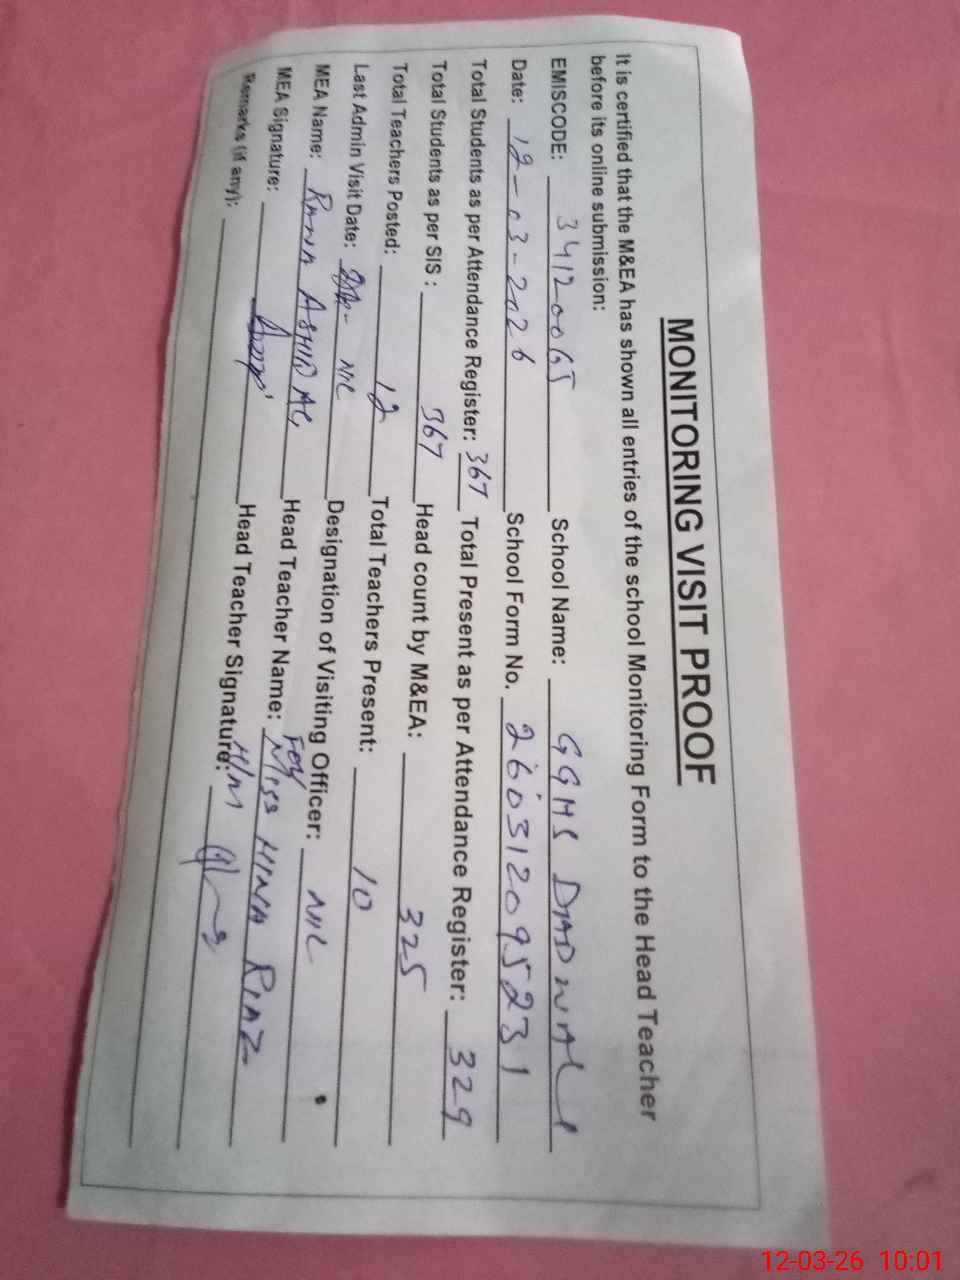 MONITORING VISIT PROOF
It is certified that the M&EA has shown all entries of the school Monitoring Form to the Head Teacher
before its online submission:
EMISCODE: 34120065 School Name: GGHS
Date: 12-03-2026 School Form No. 260312095231
Total Students as per Attendance Register: 367 Total Present as per Attendance Register: 329
Total Students as per SIS: 367 Head count by M&EA: 325
Total Teachers Posted: 12 Total Teachers Present: 10
Last Admin Visit Date: NIL Designation of Visiting Officer: NIL
MEA Name: RANA Head Teacher Name: Miss HINA RIAZ
MEA Signature: Head Teacher Signature:
Remarks (if any):
12-03-26 10:01